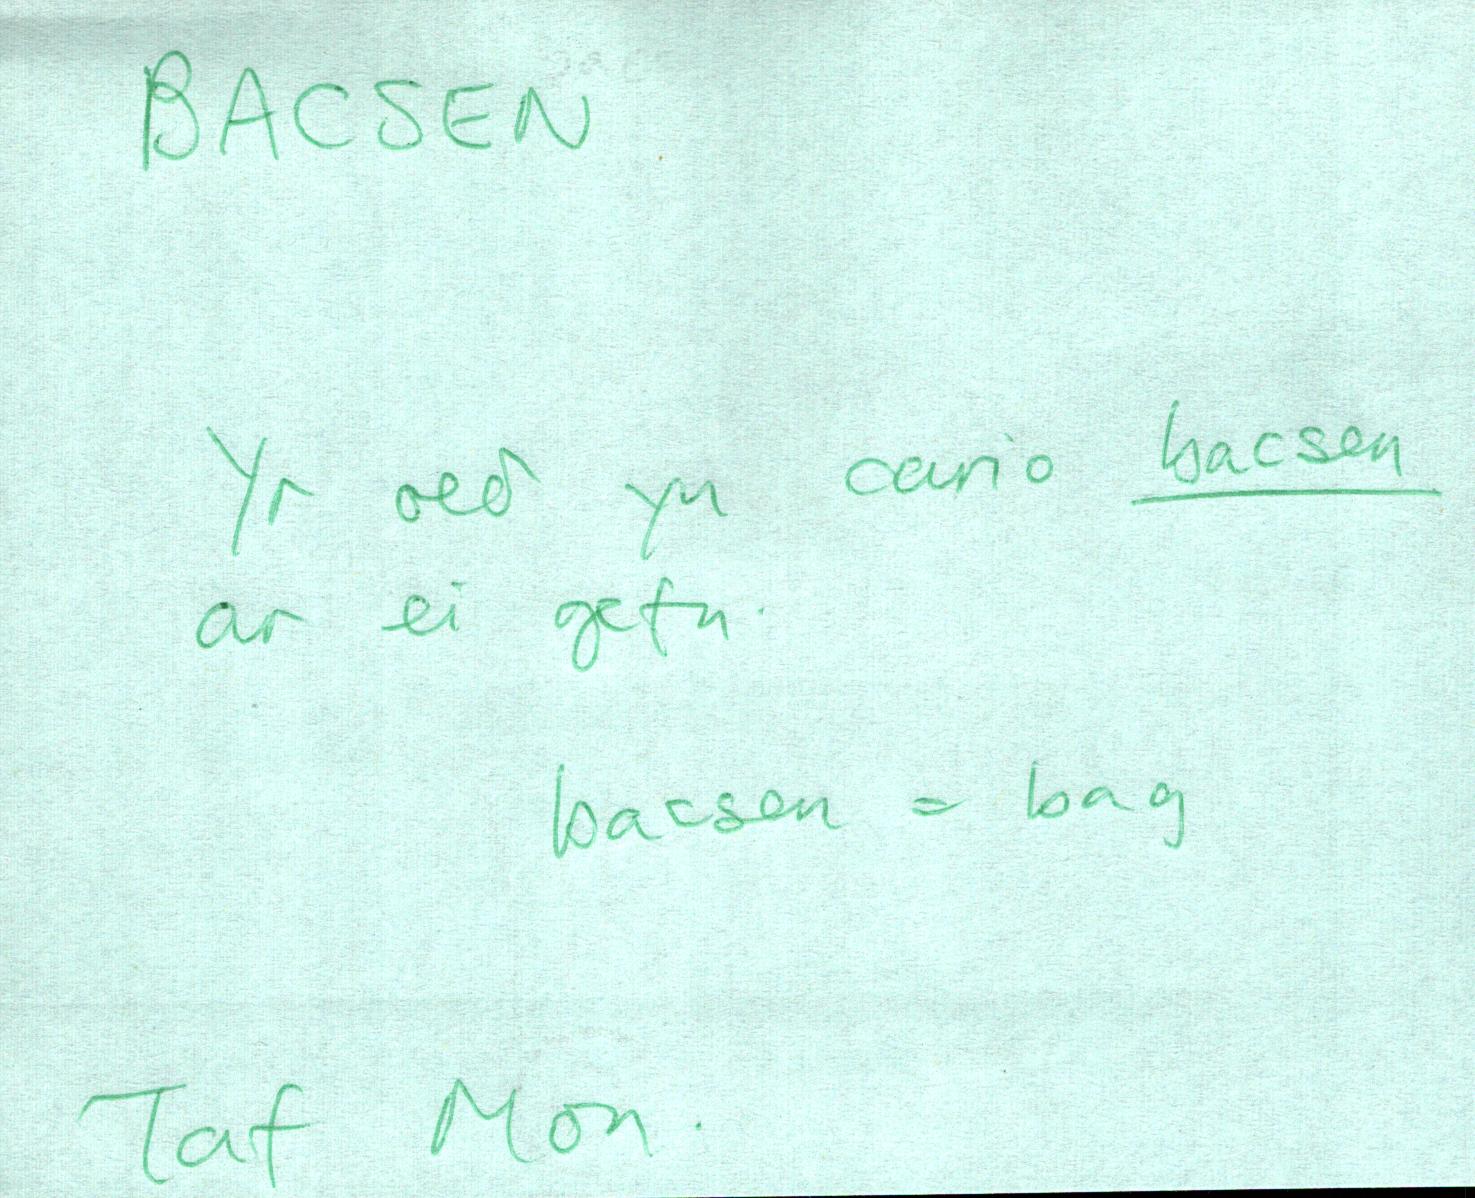 BACSEN
Yr oed yn cario bacsen
ar ei gefn.
bacsen = bag
Taf Mon.